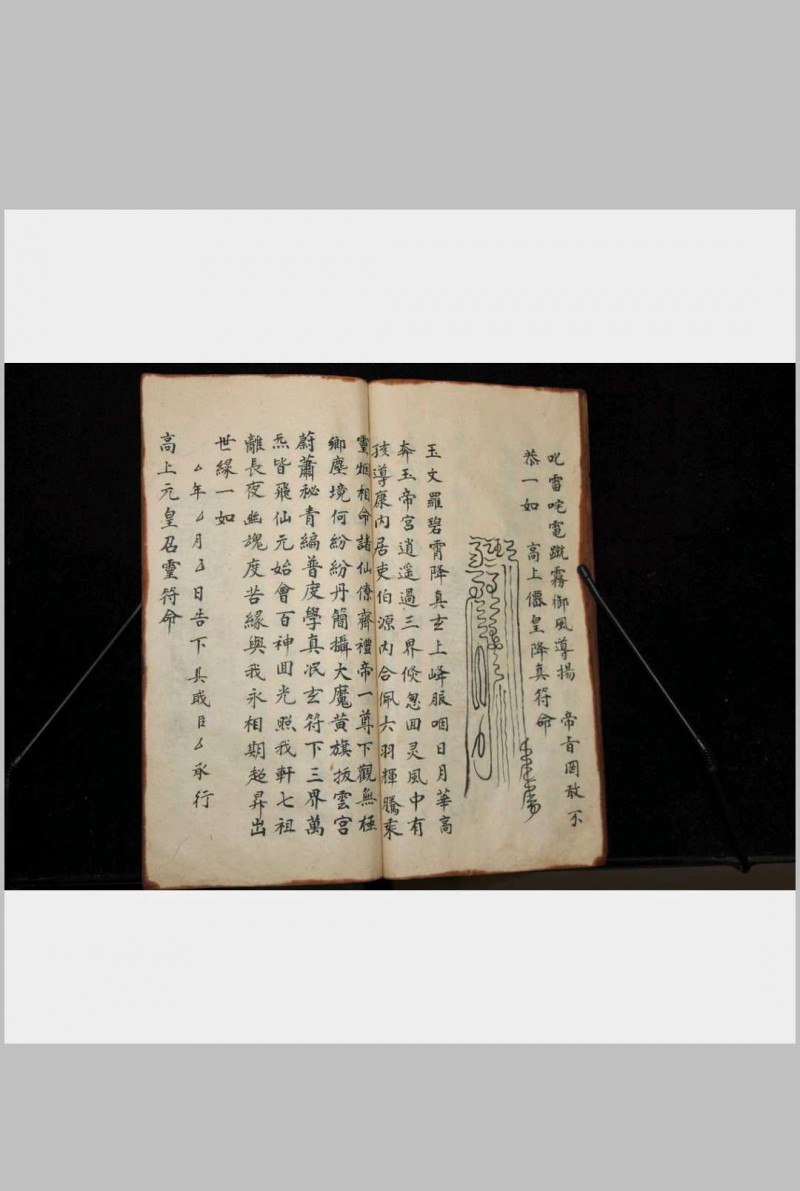 叱雷咤電蹴霧御風導揚　帝旨罔敢不
恭一如　高上僊皇降真符命
玉文羅碧霄降真玄上峰服咽日月華高
奔玉帝宮逍遥過三界倐忽回灵風中有
孩導康内居吏伯源内合佩六羽揮騰乘
靈烟相命諸仙僚齊禮帝一尊下觀無極
鄉塵境何紛紛丹簡攝大魔黃旗拔雲宮
蔚蕭秘青編普度學真泯玄符下三界萬
炁皆飛仙元始會百神回光照我軒七祖
離長夜幽魂度苦緣與我永相期超昇出
世緣一如
厶年厶月厶日告下具或日厶承行
高上元皇召靈符命